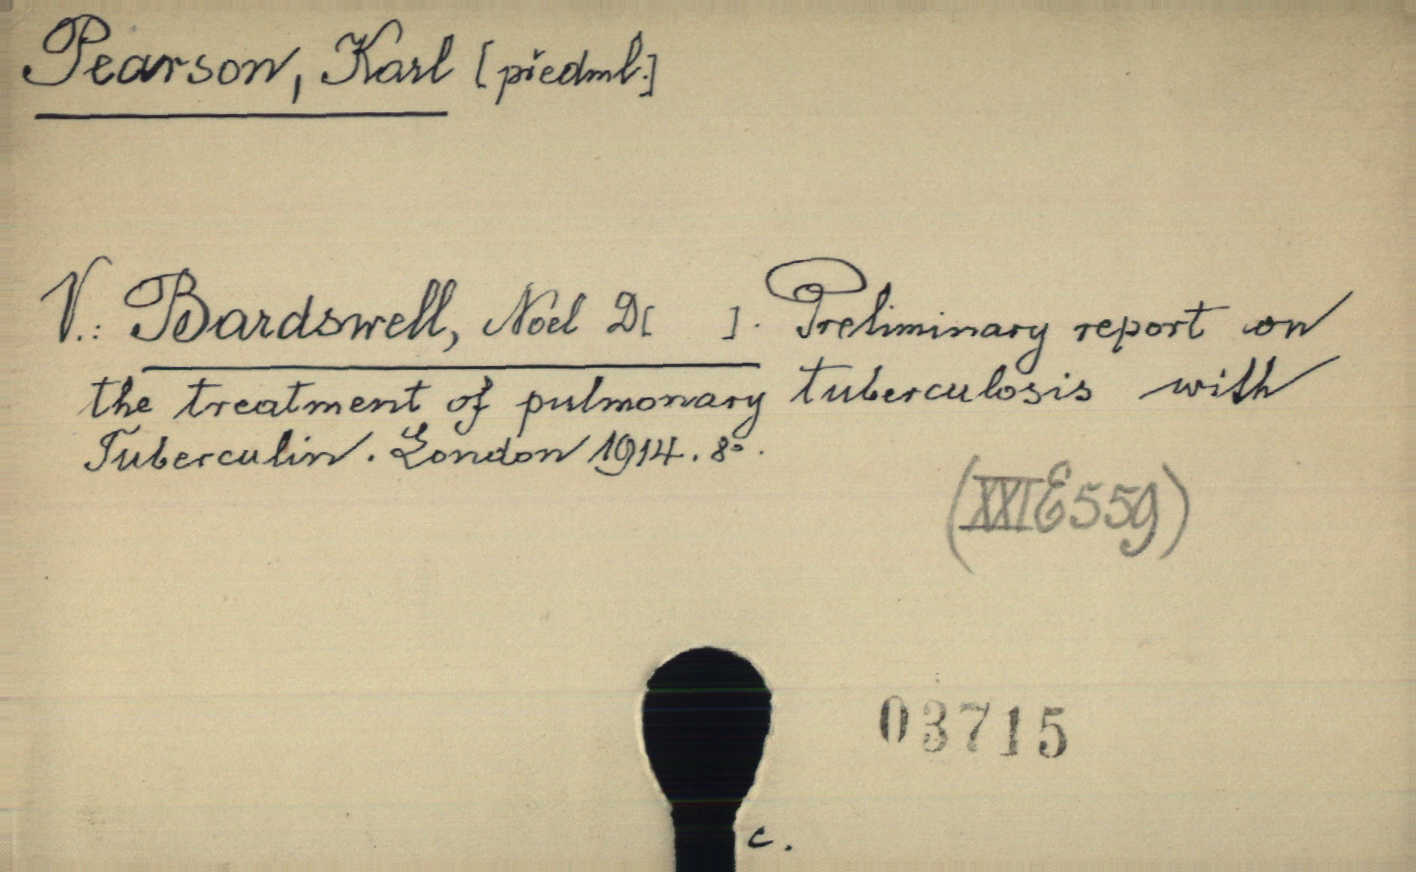 Pearson, Karl [předml.]
V.: Bardswell, Noel D[ ]. Preliminary report on
the treatment of pulmonary tuberculosis with
Tuberculin. London 1914. 8°.
(XXI E 559)
03715
c.